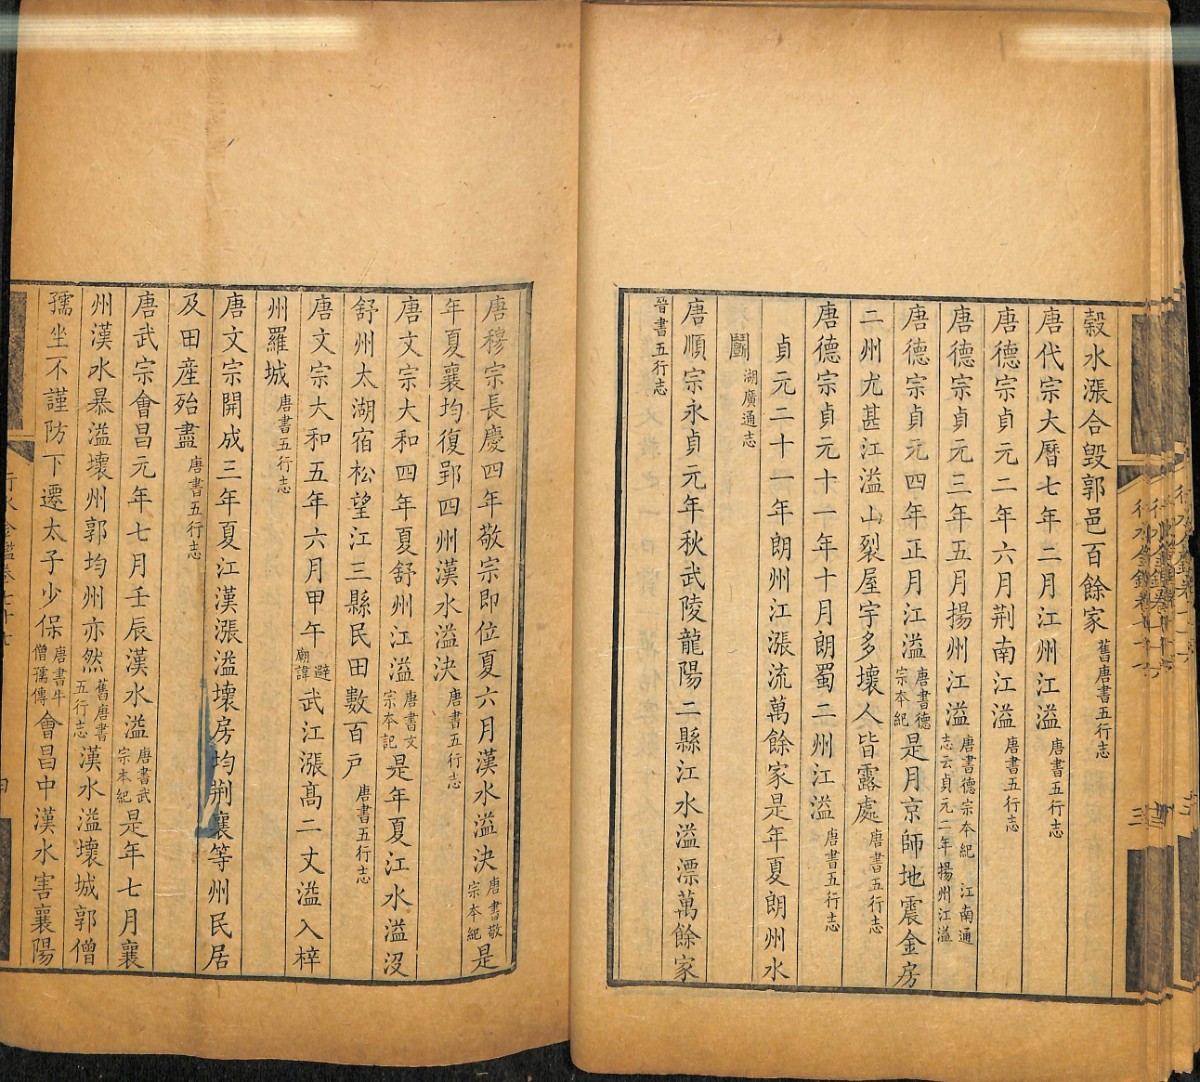 穀水漲合毀郭邑百餘家舊唐書五行志
唐代宗大曆七年二月江州江溢唐書五行志
唐德宗貞元二年六月荆南江溢唐書五行志
唐德宗貞元三年五月揚州江溢唐書德宗本紀 江南通志云貞元二年揚州江溢
唐德宗貞元四年正月江溢唐書德宗本紀是月京師地震金房
二州尤甚江溢山裂屋宇多壞人皆露處唐書五行志
唐德宗貞元十一年十月朗蜀二州江溢唐書五行志
貞元二十一年朗州江漲流萬餘家是年夏朗州水
鬭湖廣通志
唐順宗永貞元年秋武陵龍陽二縣江水溢漂萬餘家
晉書五行志
唐穆宗長慶四年敬宗即位夏六月漢水溢決唐書敬宗本紀是
年夏襄均復郢四州漢水溢決唐書五行志
唐文宗大和四年夏舒州江溢唐書文宗本記是年夏江水溢沒
舒州太湖宿松望江三縣民田數百戶唐書五行志
唐文宗大和五年六月甲午避廟諱武江漲高二丈溢入梓
州羅城唐書五行志
唐文宗開成三年夏江漢漲溢壞房均荆襄等州民居
及田産殆盡唐書五行志
唐武宗會昌元年七月壬辰漢水溢唐書武宗本紀是年七月襄
州漢水暴溢壞州郭均州亦然舊唐書五行志漢水溢壞城郭僧
孺坐不謹防下遷太子少保唐書牛僧孺傳會昌中漢水害襄陽